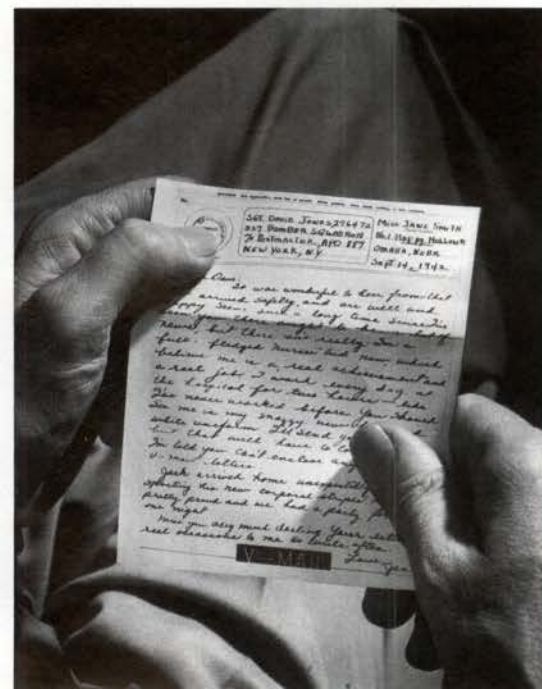 No.
SGT. DAVID JONES, 276472
227 BOMBER SQUADRON
% POSTMASTER, APO 887
NEW YORK, N.Y.
MISS JANE SMITH
No. 1 Happy Hollow
OMAHA, NEBR
Sept. 14, 1942
Dave:
It was wonderful to hear from that
arrived safely and are well and
happy. Seems such a long time since I've
news, but there is really. I'm a
full-fledged nurses aid now, which
believe me is a real achievement and
a real job. I work every day at
the hospital for two hours - like
I've never worked before. You should
see me in my snazzy new blue and
white uniform. I'll send you
but they will have to
I'm told you can't enclose
V-mail letters.
Jack arrived home unexpectedly
sporting his new corporal stripes
pretty proud and we had a party
one night.
Miss you very much darling. Your letters
real to me so write often
Love, Jane
V-MAIL